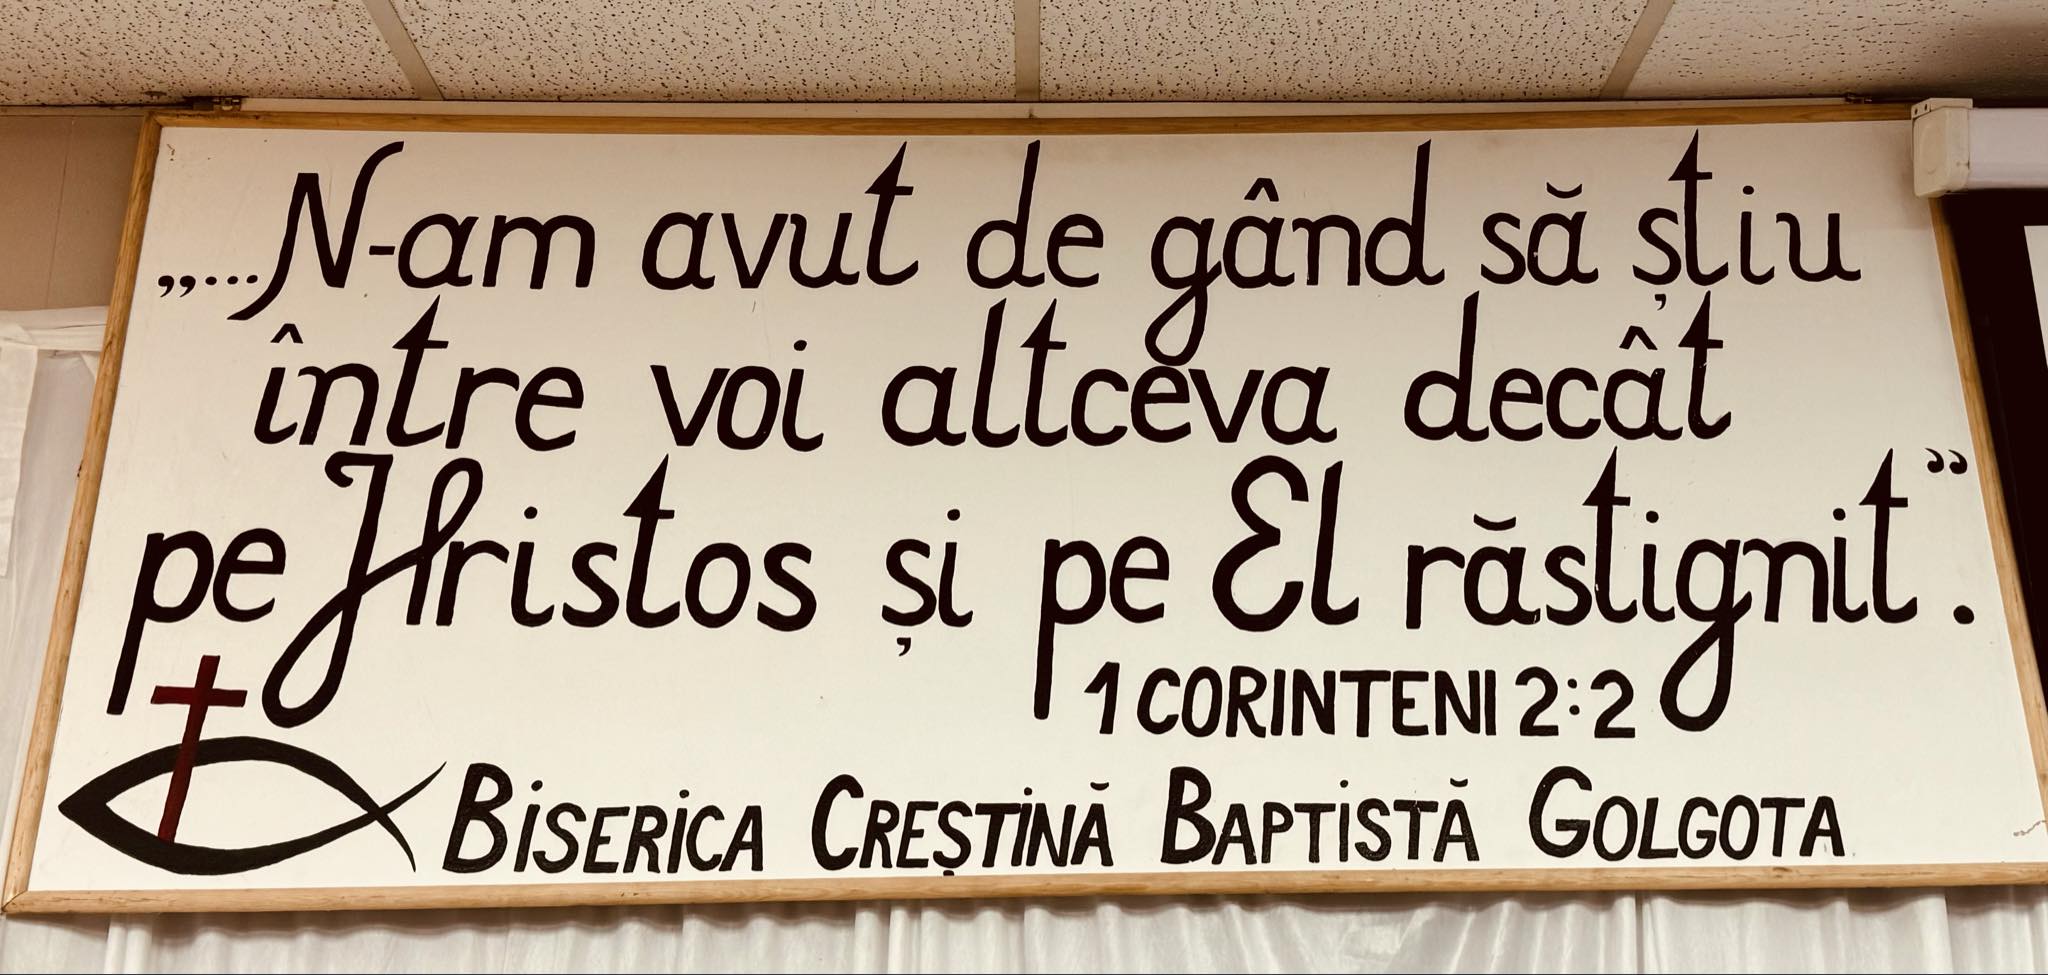 „...N-am avut de gând să știu
între voi altceva decât
pe Hristos și pe El răstignit”.
1 CORINTENI 2:2
BiSERiCA CREȘTiNĂ BAPTiSTĂ GOLGOTA